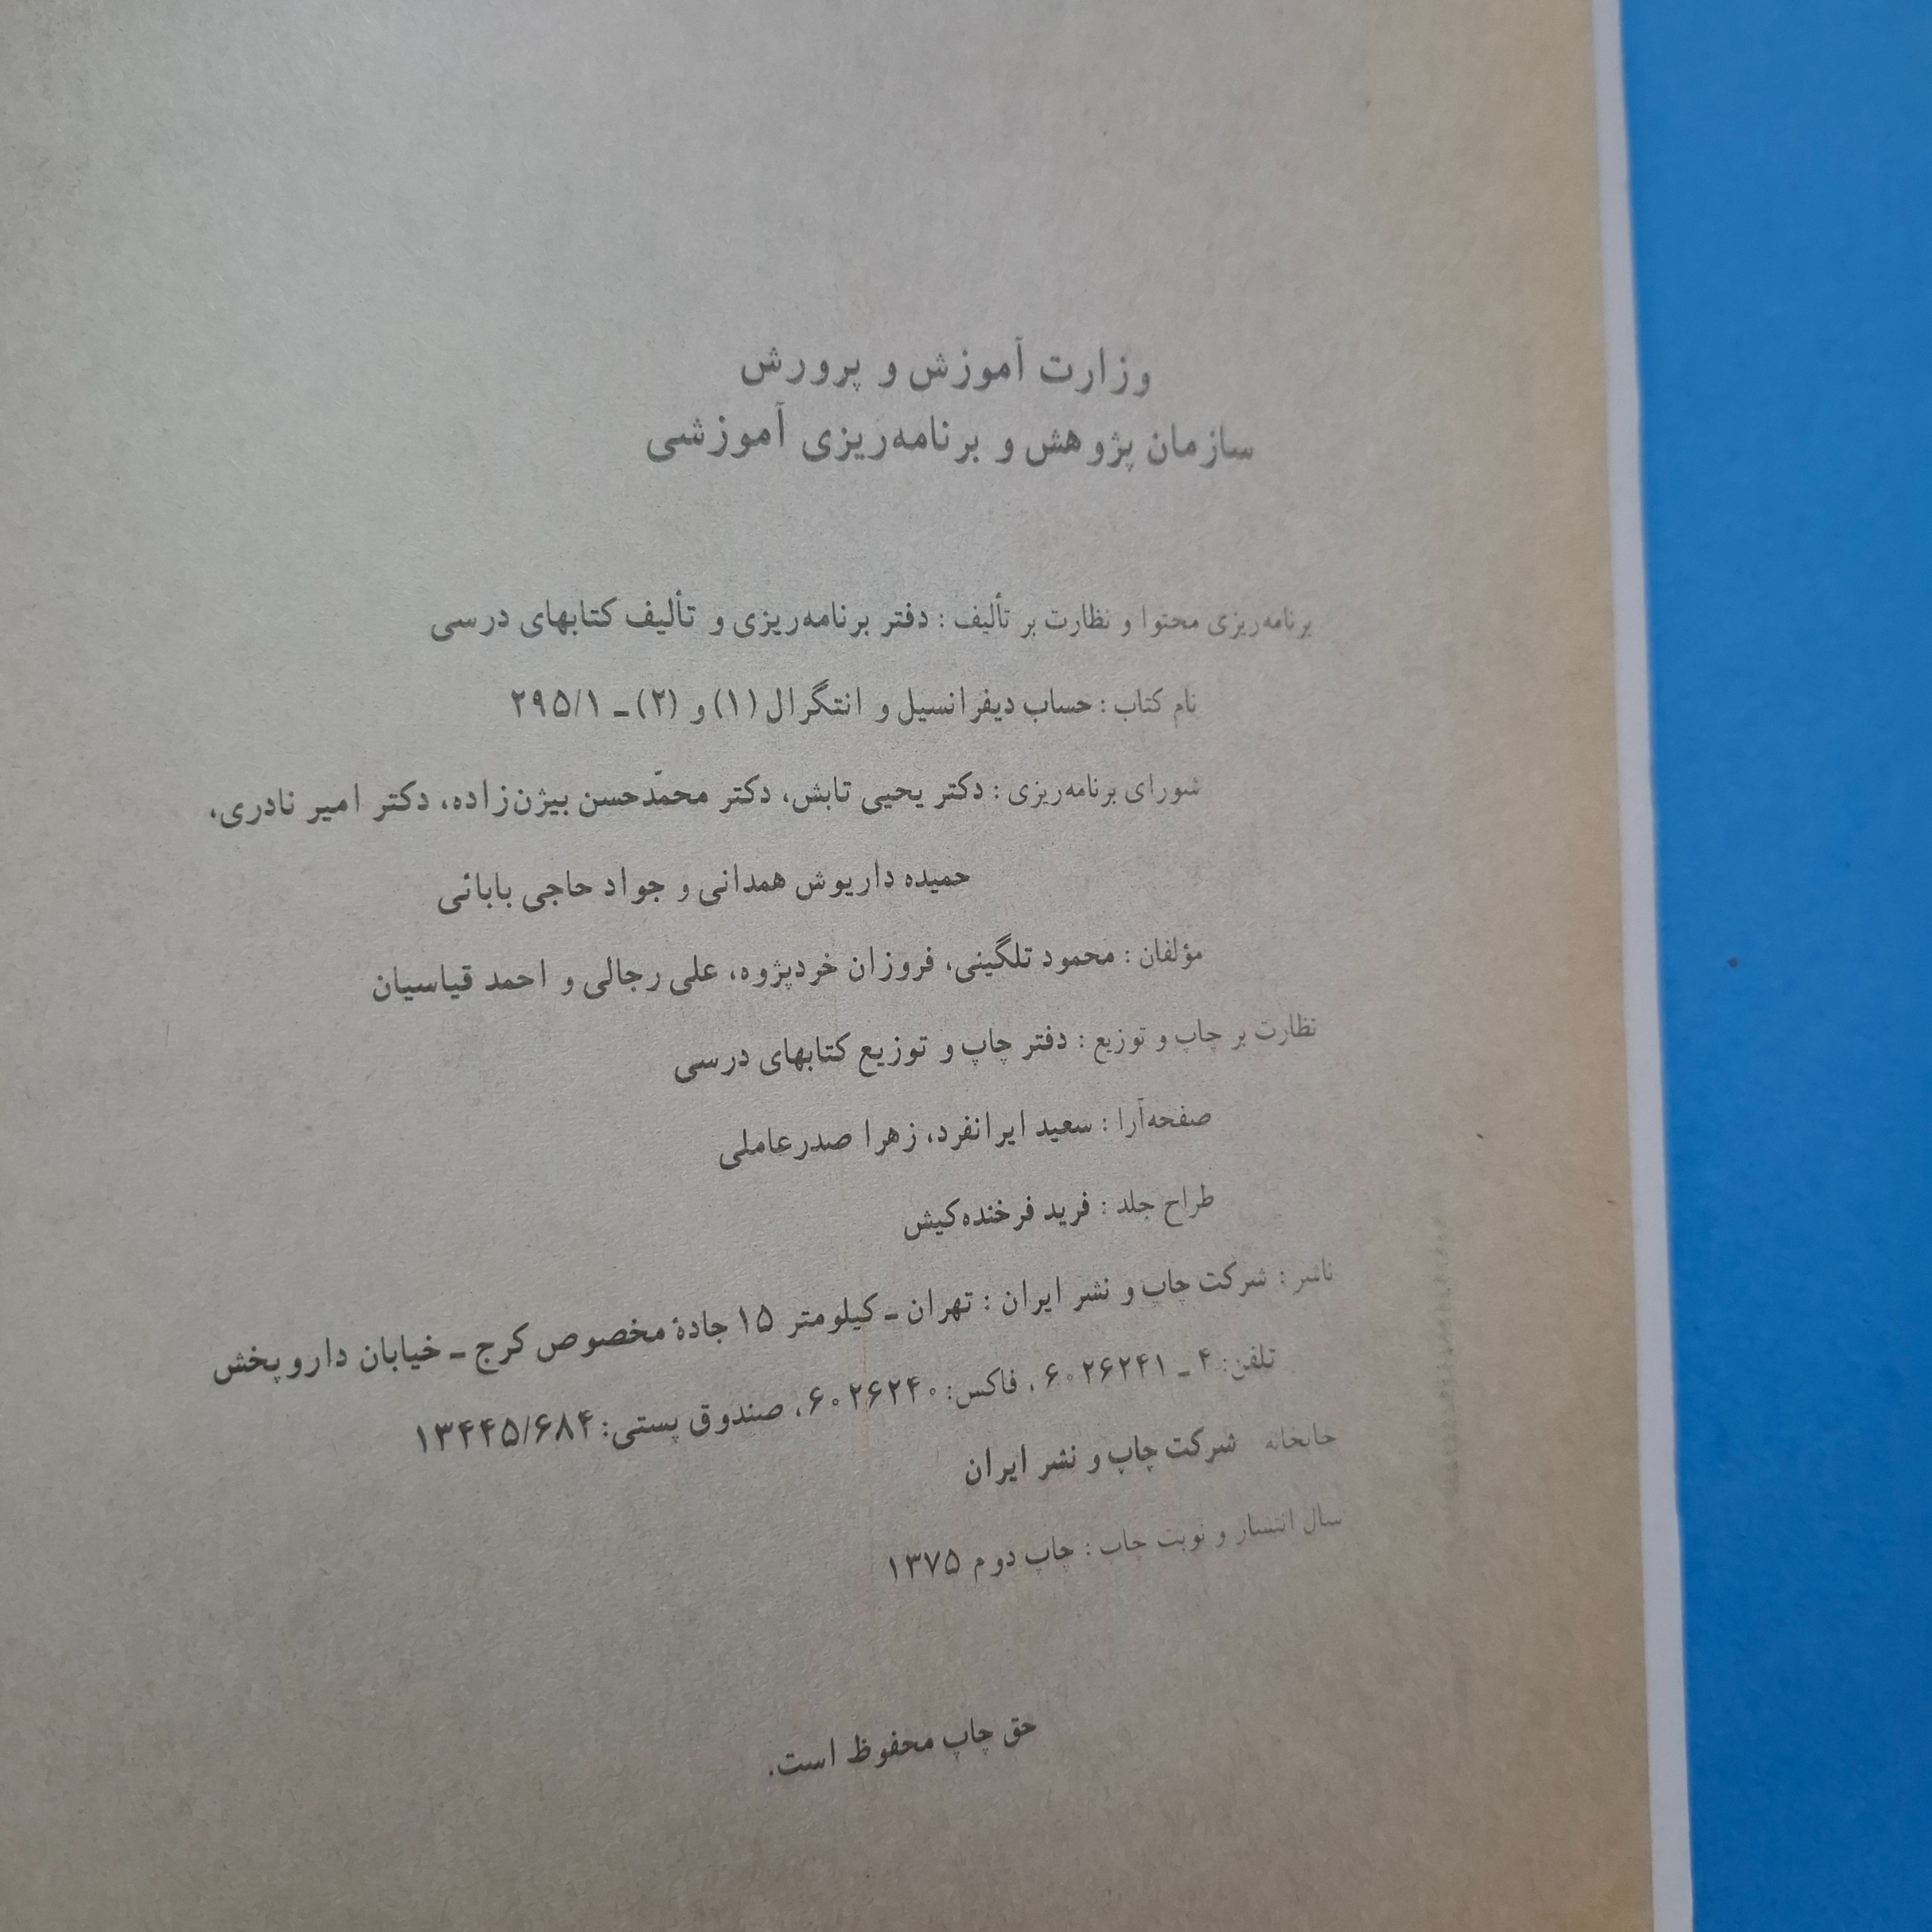 وزارت آموزش و پرورش
سازمان پژوهش و برنامه‌ریزی آموزشی
برنامه‌ریزی محتوا و نظارت بر تألیف : دفتر برنامه‌ریزی و تألیف کتابهای درسی
نام کتاب : حساب دیفرانسیل و انتگرال (۱) و (۲) ـ ۲۹۵/۱
شورای برنامه‌ریزی : دکتر یحیی تابش، دکتر محمّدحسن بیژن‌زاده، دکتر امیر نادری،
حمیده داریوش همدانی و جواد حاجی بابائی
مؤلفان : محمود تلگینی، فروزان خردپژوه، علی رجالی و احمد قیاسیان
نظارت بر چاپ و توزیع : دفتر چاپ و توزیع کتابهای درسی
صفحه‌آرا : سعید ایرانفرد، زهرا صدرعاملی
طراح جلد : فرید فرخنده‌کیش
ناشر : شرکت چاپ و نشر ایران : تهران ـ کیلومتر ۱۵ جادهٔ مخصوص کرج ـ خیابان داروپخش
تلفن: ۴ ـ ۶۰۲۶۲۴۱ ، فاکس: ۶۰۲۶۲۴۰، صندوق پستی: ۱۳۴۴۵/۶۸۴
چاپخانه شرکت چاپ و نشر ایران
سال انتشار و نوبت چاپ : چاپ دوم ۱۳۷۵
حق چاپ محفوظ است.